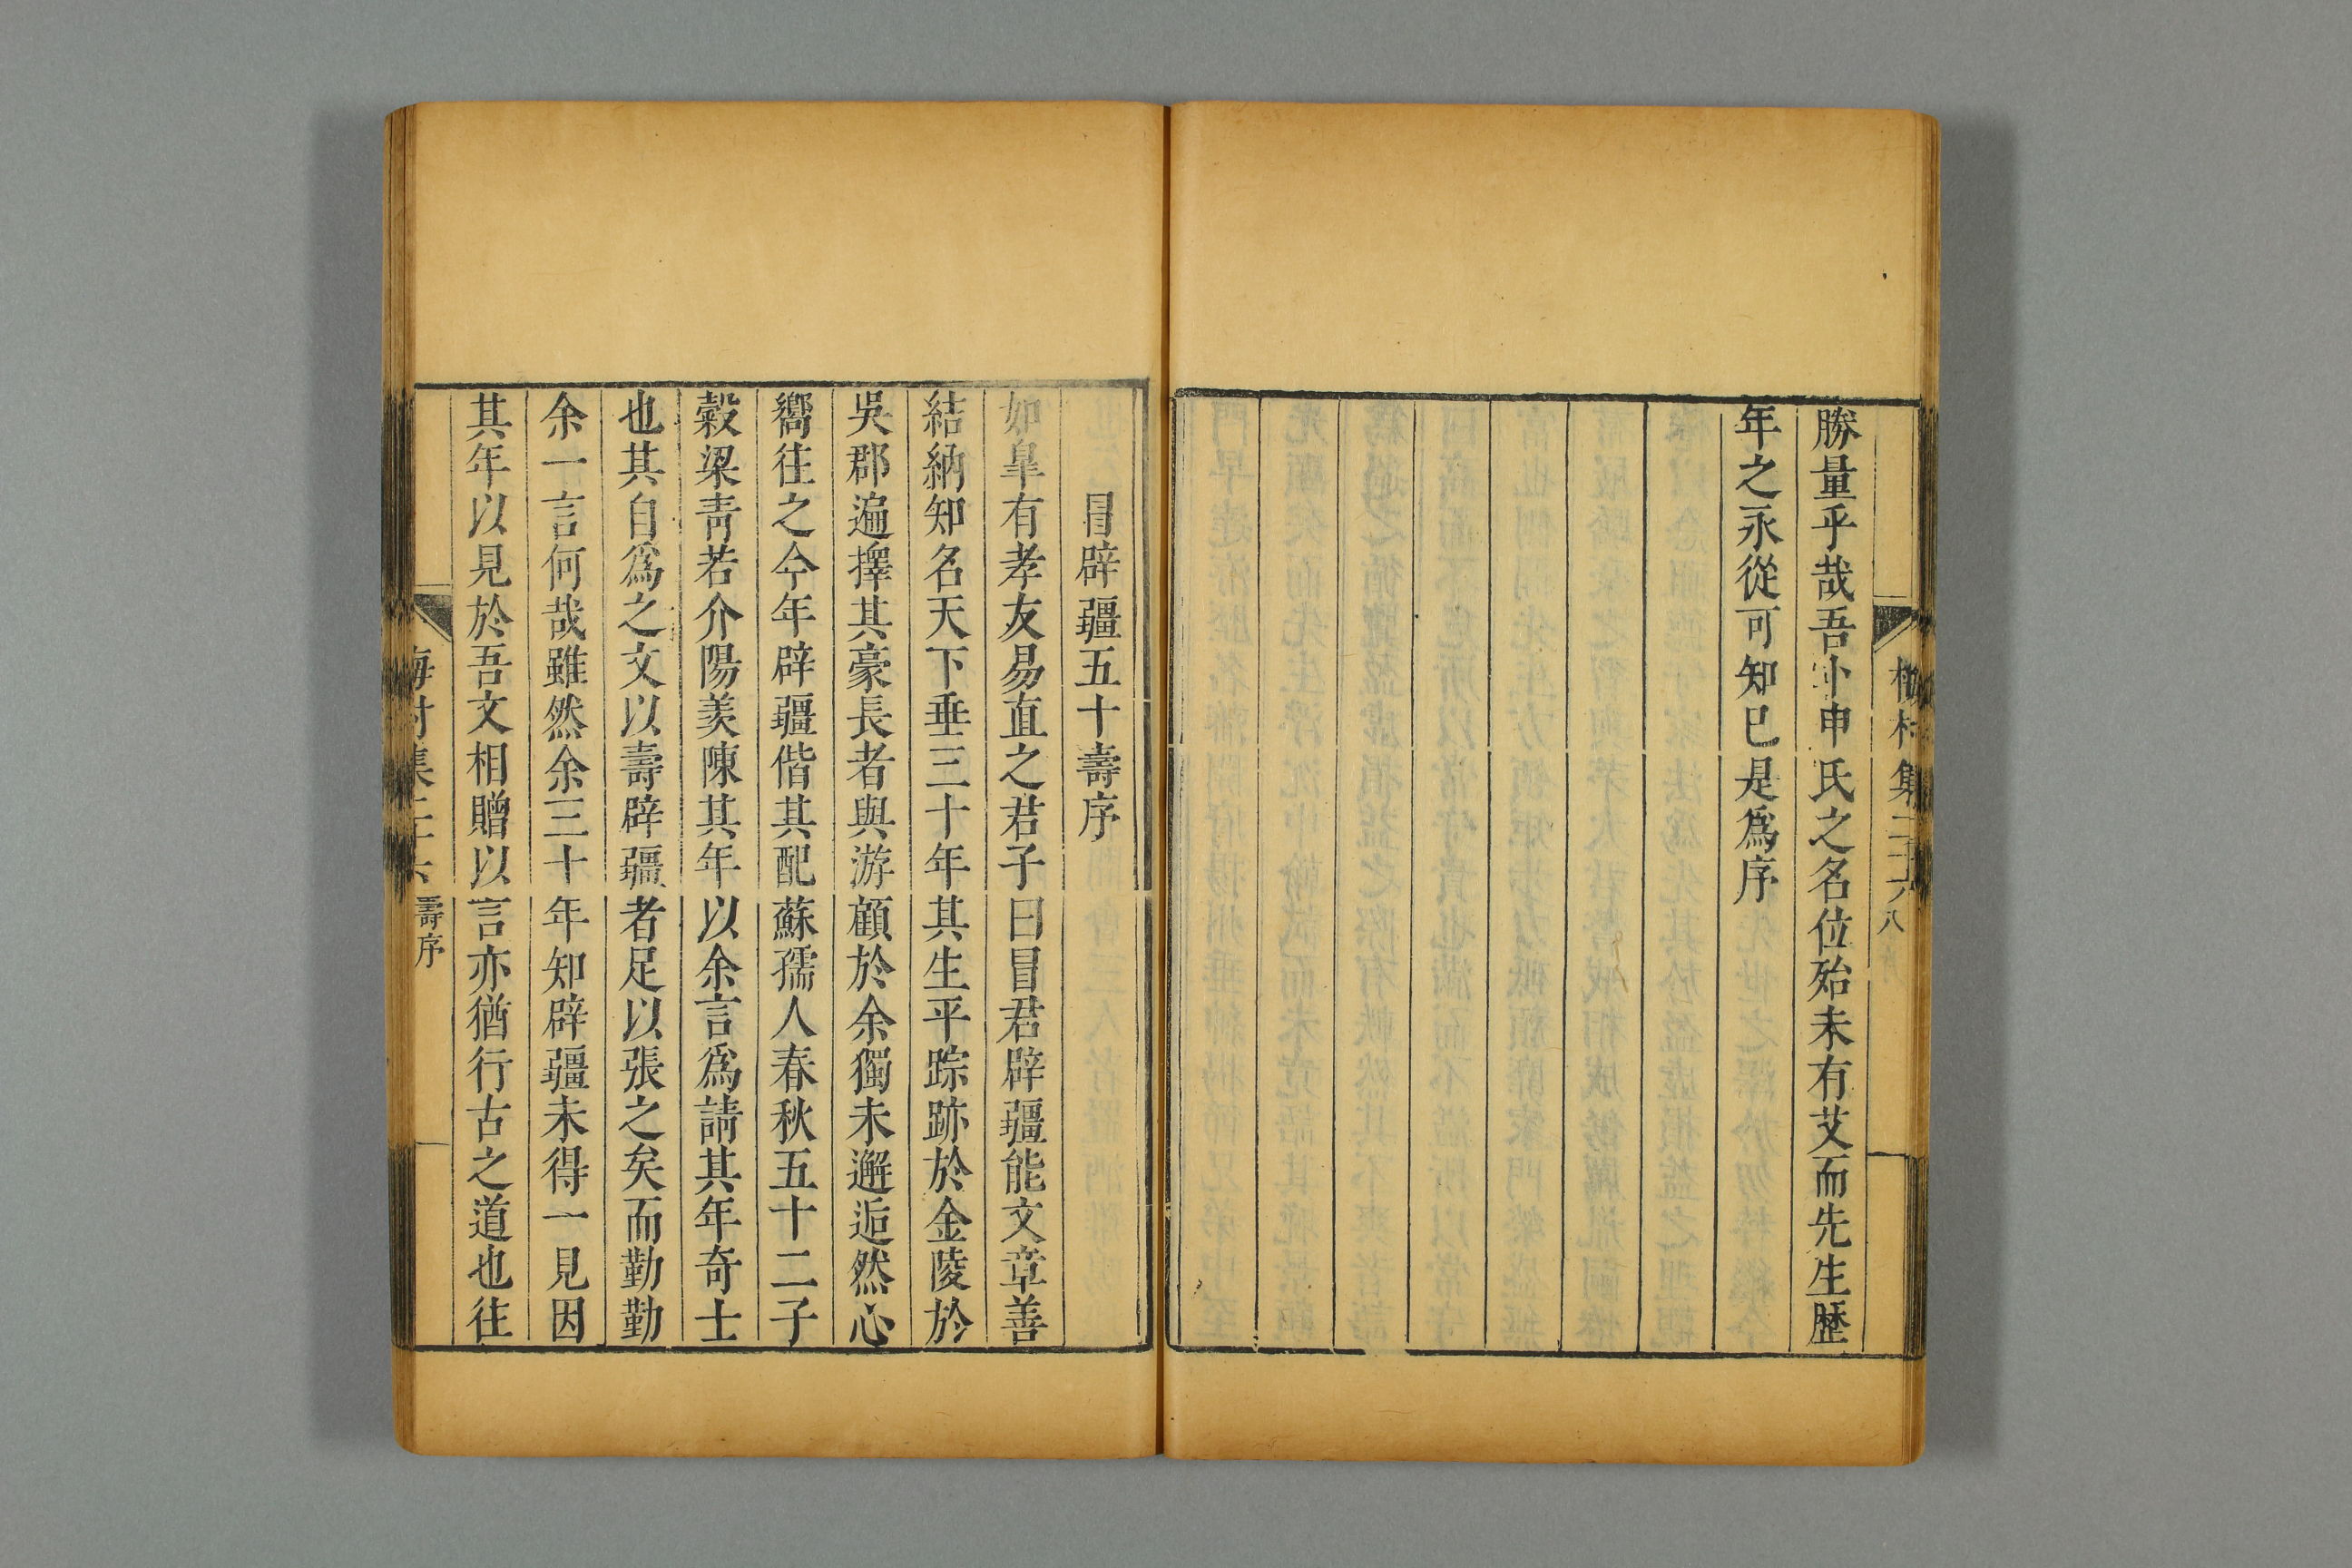 梅村集二十六 八
勝量乎哉吾卟申氏之名位殆未有艾而先生歷
年之永從可知已是爲序
冒辟疆五十壽序
如皐有孝友易直之君子曰冒君辟疆能文章善
結納知名天下垂三十年其生平踪跡於金陵於
吳郡遍擇其豪長者與游顧於余獨未邂逅然心
嚮往之今年辟疆偕其配蘇孺人春秋五十二子
穀梁靑若介陽羨陳其年以余言爲請其年奇士
也其自爲之文以壽辟疆者足以張之矣而勤勤
余一言何哉雖然余三十年知辟疆未得一見因
其年以見於吾文相贈以言亦猶行古之道也往
梅村集二十六 壽序